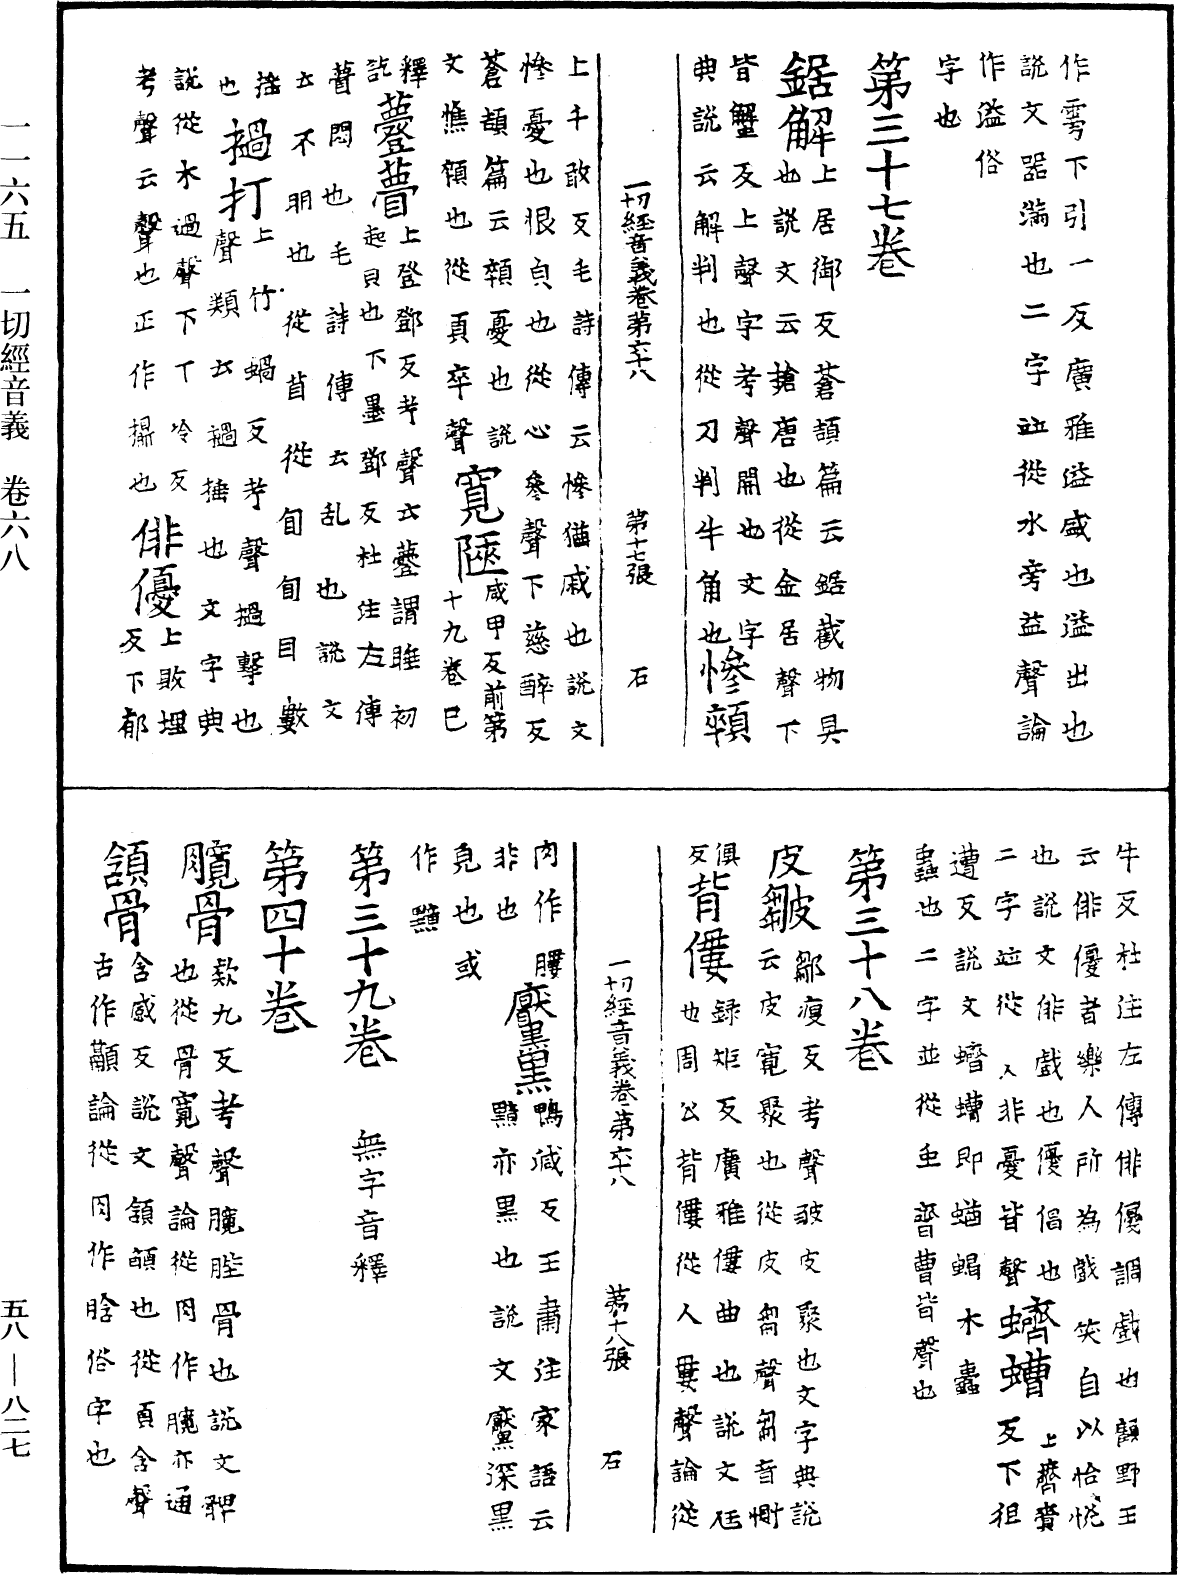 一一六五 一切經音義 卷六八
作雱下引一反廣雅溢盛也溢出也
説文器滿也二字竝從水旁益聲論
作溢俗
字也
第三十七卷
鋸解上居御反蒼頡篇云鋸截物具
也説文云搶唐也從金居聲下
皆蟹反上聲字考聲開也文字
典説云解判也從刀判牛角也慘顇
一切經音義卷第六十八 第十七張 石
上千敢反毛詩傳云慘猶戚也説文
慘憂也恨皃也從心參聲下慈醉反
蒼頡篇云顇憂也説
文憔顇也從頁卒聲寬陿咸甲反前第
十九卷已
釋訖
薹瞢上登鄧反考聲云薹謂睡初
起皃也下墨鄧反杜注左傳
云瞢悶也毛詩傳云乱也説文
云不明也從苜從旬旬目數
搖也
檛打上竹蝸反考聲檛擊也
聲類云檛捶也文字典
説從木過聲下丁冷反
考聲云擊也正作撾也俳優上敗埋
反下郁
牛反杜注左傳俳優調戲也顧野王
云俳優者樂人所為戲笑自以怡悦
也説文俳戲也優倡也
二字竝從人非憂皆聲蠐螬上齊賷
反下徂
遭反説文蠐螬即蝤蝎木蠹
蟲也二字並從虫齊曹皆聲也
第三十八卷
皮皺鄒瘦反考聲皺皮聚也文字典説
云皮寬聚也從皮芻聲芻音惻
俱反
背僂錄矩反廣雅僂曲也説文尫
也周公背僂從人婁聲論從
一切經音義卷第六十八 第十八張 石
肉作膢
非也
黶黑鴨減反王肅注家語云
黶亦黑也説文黶深黑
皃也或
作黬
第三十九卷 無字音釋
第四十卷
臗骨款九反考聲臗䏶骨也説文髀
也從骨寬聲論從肉作臗亦通
頷骨含感反説文頷頤也從頁含聲
古作顄論從肉作肣俗字也
五八—八二七